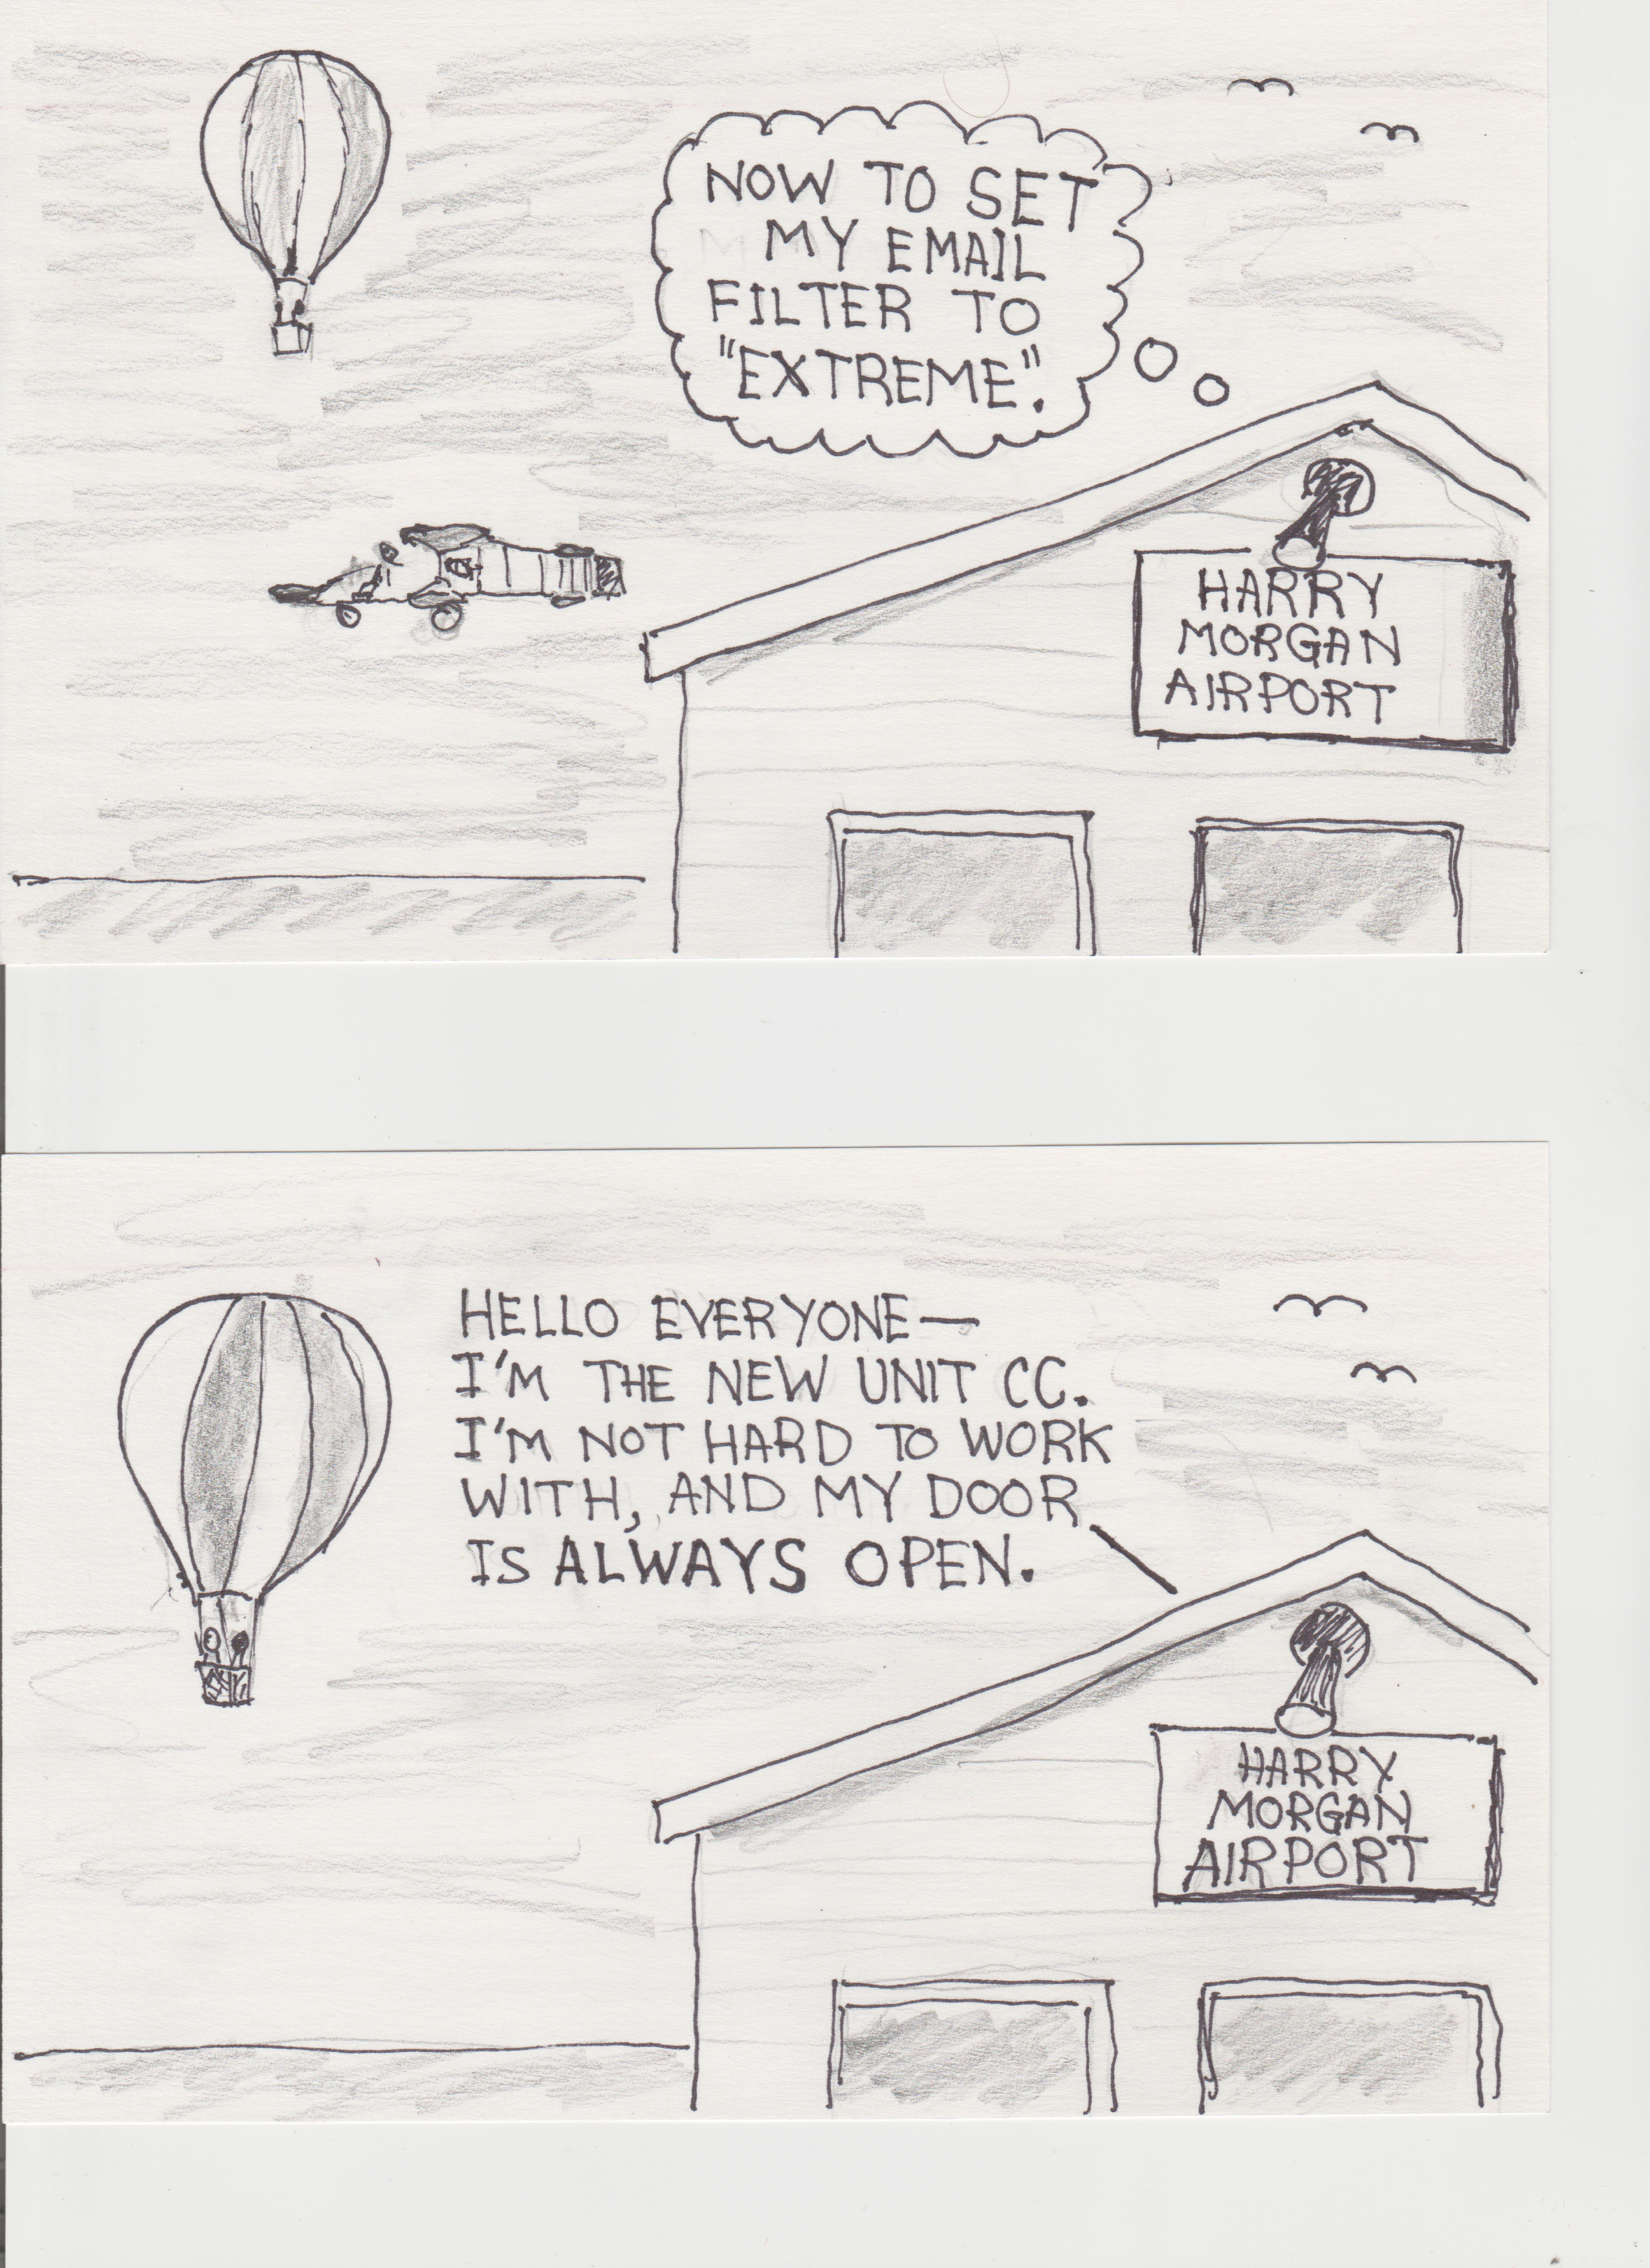 NOW TO SET
MY EMAIL
FILTER TO
"EXTREME".
HARRY
MORGAN
AIRPORT
HELLO EVERYONE—
I'M THE NEW UNIT CC.
I'M NOT HARD TO WORK
WITH, AND MY DOOR
IS ALWAYS OPEN.
HARRY
MORGAN
AIRPORT